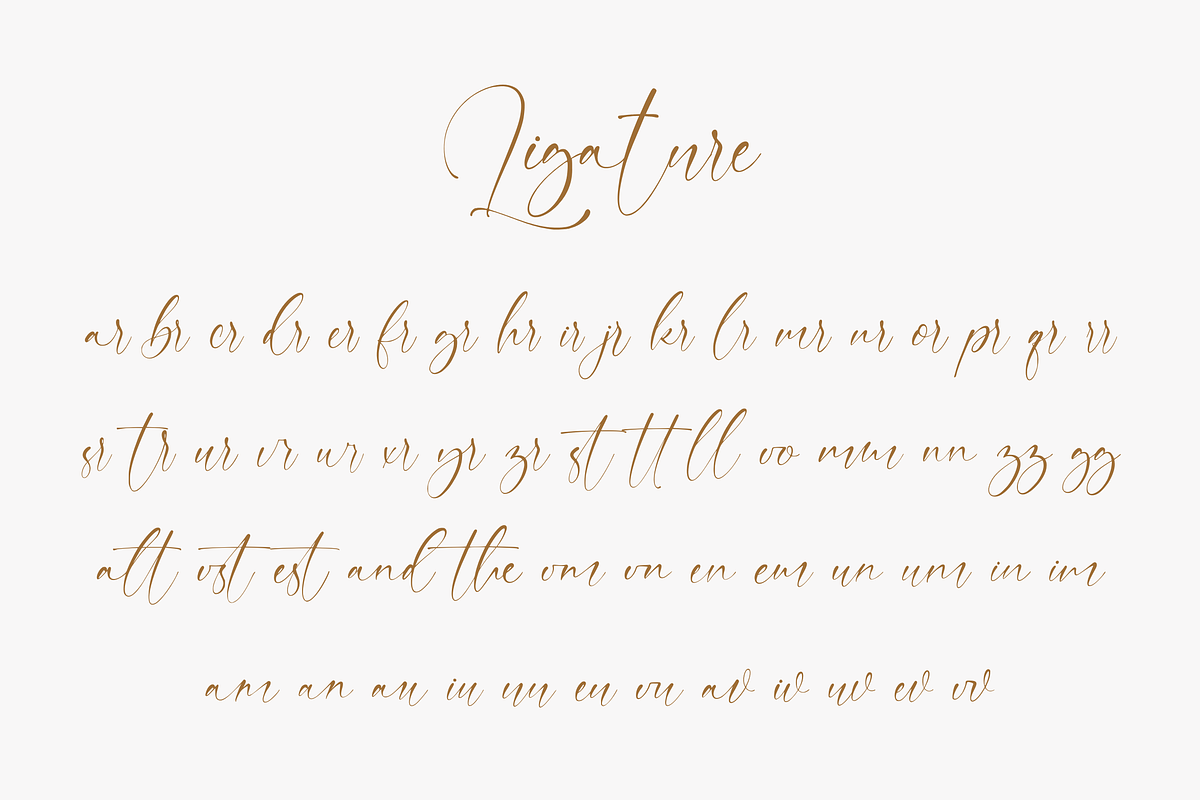 Ligature
ar br cr dr er fr gr hr ir jr kr lr mr nr or pr qr rr
sr tr ur vr wr xr yr zr st tt ll oo mm nn zz gg
att ost est and the om on en em un um in im
am an au iu uu eu ou av iv uv ev ov